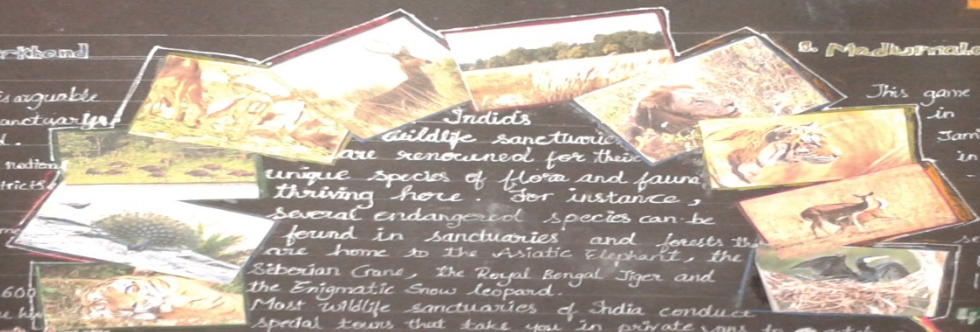 8. Medhumala
is arguable
This game
anctuary
in
India's
wildlife sanctuaries
d.
are renowned for their
nation
unique species of flora and fauna
tricts
thriving here. For instance,
several endangered species can be
found in sanctuaries and forests th
are home to the Asiatic Elephant, the
Siberian Crane, the Royal Bengal Tiger and
600
the Enigmatic Snow leopard.
Most wildlife sanctuaries of India conduct
special tours that take you in private vans